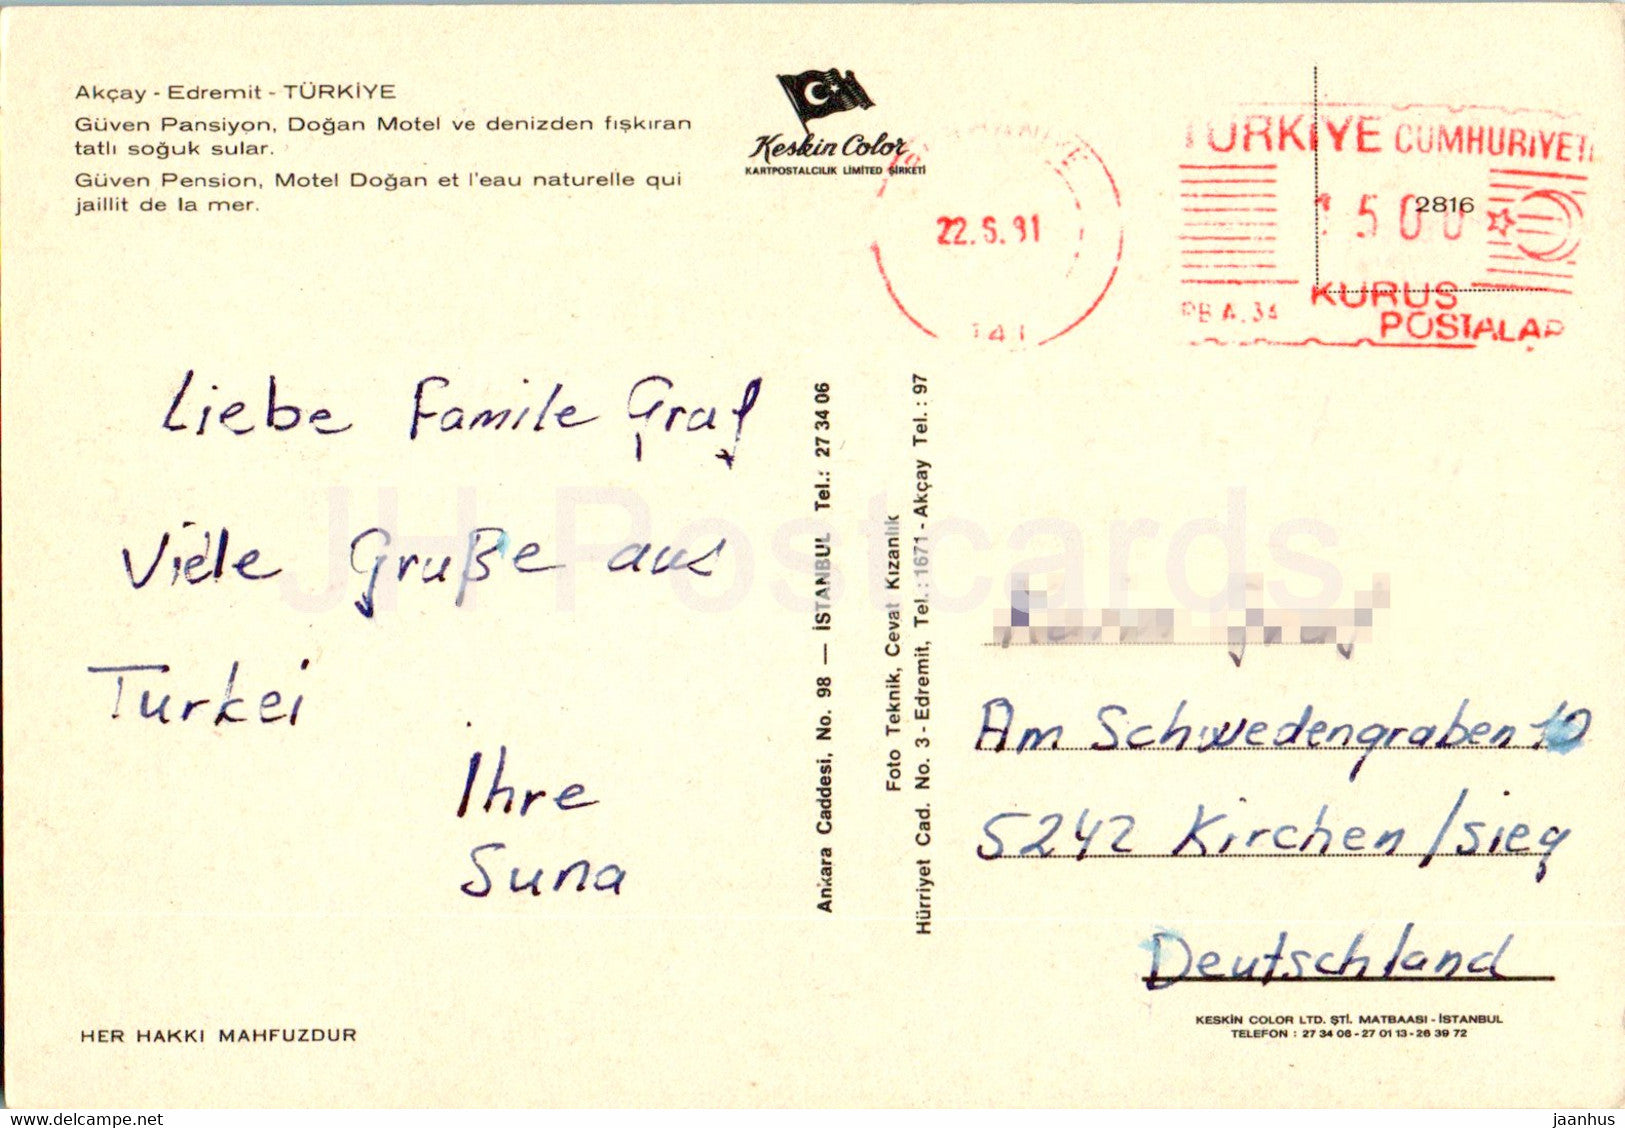 Akçay - Edremit - TÜRKİYE
Güven Pansiyon, Doğan Motel ve denizden fışkıran
tatlı soğuk sular.
Güven Pension, Motel Doğan et l'eau naturelle qui
jaillit de la mer.
Keskin Color
KARTPOSTALCILIK LIMITED ŞİRKETİ
22.5.91
TÜRKİYE CUMHURİYETİ
2816
500
PB A.34
KURUŞ
POSTALAR
Liebe Famile Graf
Viele Gruße aus
Turkei
Ihre
Suna
Ankara Caddesi, No. 98 — İSTANBUL Tel.: 27 34 06
Foto Teknik, Cevat Kızanlık
Hürriyet Cad. No. 3 - Edremit, Tel.: 1671 - Akçay Tel.: 97
Am Schwedengraben 10
5242 Kirchen/Sieg
Deutschland
HER HAKKI MAHFUZDUR
KESKİN COLOR LTD. ŞTİ. MATBAASI - İSTANBUL
TELEFON : 27 34 06 - 27 01 13 - 26 39 72
JH Postcards
https://www.delcampe.net
jaanhus